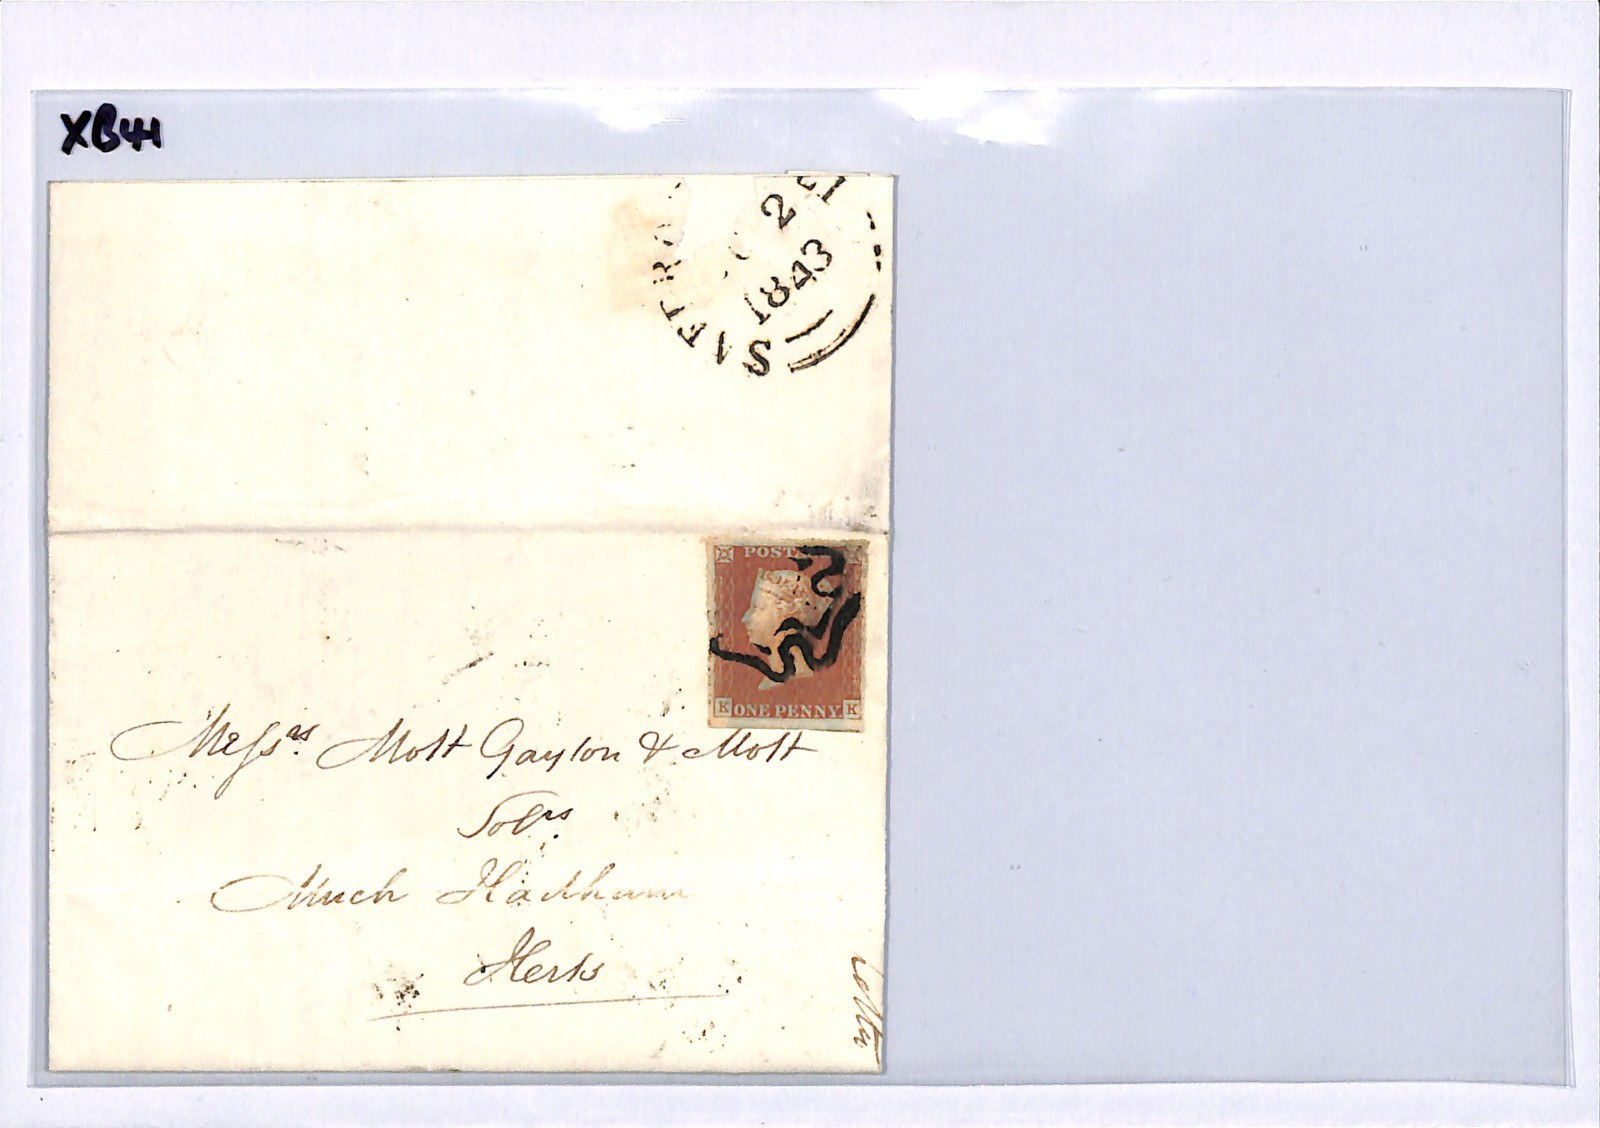 XB41
SAFFRO
2
1843
POST
K ONE PENNY K
Messrs. Mott Gaylon & Mott
Solrs.
Much Hadham
Herts